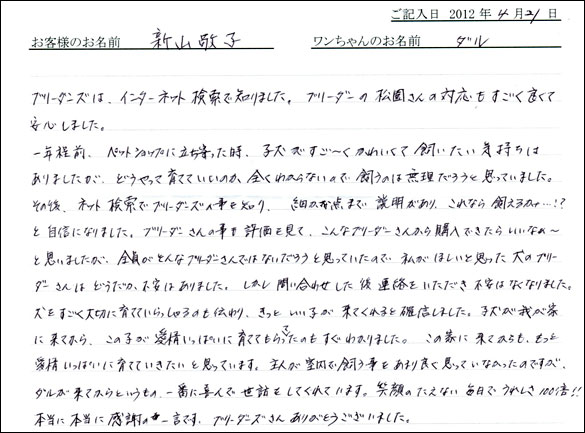 ご記入日 2012 年 4 月 21 日
お客様のお名前 新山敬子 ワンちゃんのお名前 ダル
ブリーダーズは、インターネット検索で知りました。ブリーダーの松園さんの対応もすごく良くて
安心しました。
一年程前、ペットショップに立ち寄った時、子犬がすご〜くかわいくて飼いたい気持ちは
ありましたが、どうやって育てていいものか、全くわからないので飼うのは無理だろうと思っていました。
その後、ネット検索でブリーダーズの事を知り、細かな点まで説明があり、これなら飼えるかも…!?
と自信になりました。ブリーダーさんの事も評価を見て、こんなブリーダーさんから購入できたらいいなぁ〜
と思いましたが、全員がそんなブリーダーさんではないだろうと思っていたので、私がほしいと思った犬のブリー
ダーさんはどうだか、不安はありました。しかし問い合わせした後、連絡をいただき不安はなくなりました。
犬をすごく大切に育てていらっしゃるのも伝わり、きっといい子が来てくれると確信しました。子犬が我が家
に来てから、この子が愛情いっぱいに育ててもらってたのもすぐわかりました。この家に来てからも、もっと
愛情いっぱいに育てていきたいと思っています。主人が室内で飼う事をあまり良く思っていなかったのですが、
ダルが来てからというもの、一番に喜んで世話をしてくれています。笑顔のたえない毎日でうれしさ100倍!!
本当に本当に感謝の一言です。ブリーダーズさんありがとうございました。